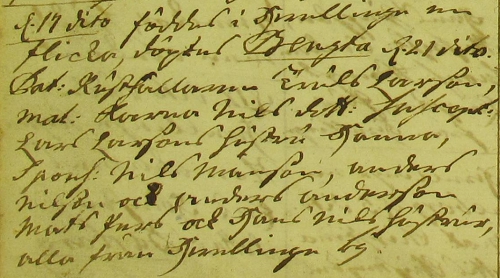 d. 17 dito föddes i Hvellinge en
flicka, döptes Bengta d. 21 dito.
Pat: Rusthållaren Truls Larson,
mat: Karna Nils dott: Suscept:
Lars Larsons hustru Hanna,
Spons: Nils Månson, anders
Nilson och anders anderson
Mats Pers och Hans Nils hustrur,
alla från Hvellinge by.